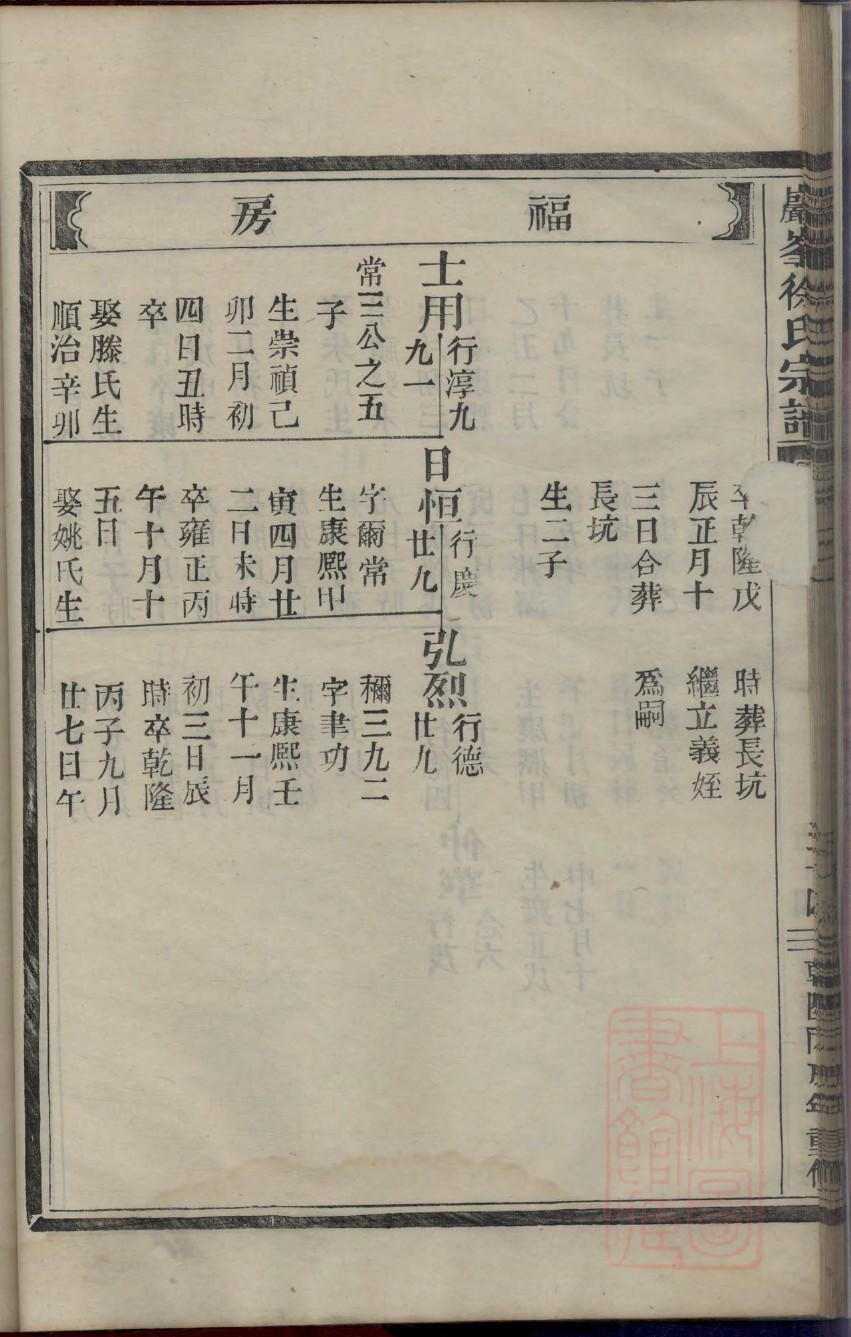 巖峯徐氏宗譜
福房
卒乾隆戊
辰正月十
三日合葬
長坑
生二子
時葬長坑
繼立義姪
爲嗣
士用行淳九九一
常三公之五
子
生崇禎己
卯二月初
四日丑時
卒
娶滕氏生
順治辛卯
日恒行慶廿九
字爾常
生康熙甲
寅四月廿
二日未時
卒雍正丙
午十月十
五日
娶姚氏生
弘烈行德廿九
禰三九二
字聿功
生康熙壬
午十一月
初三日辰
時卒乾隆
丙子九月
廿七日午
上海圖書館藏